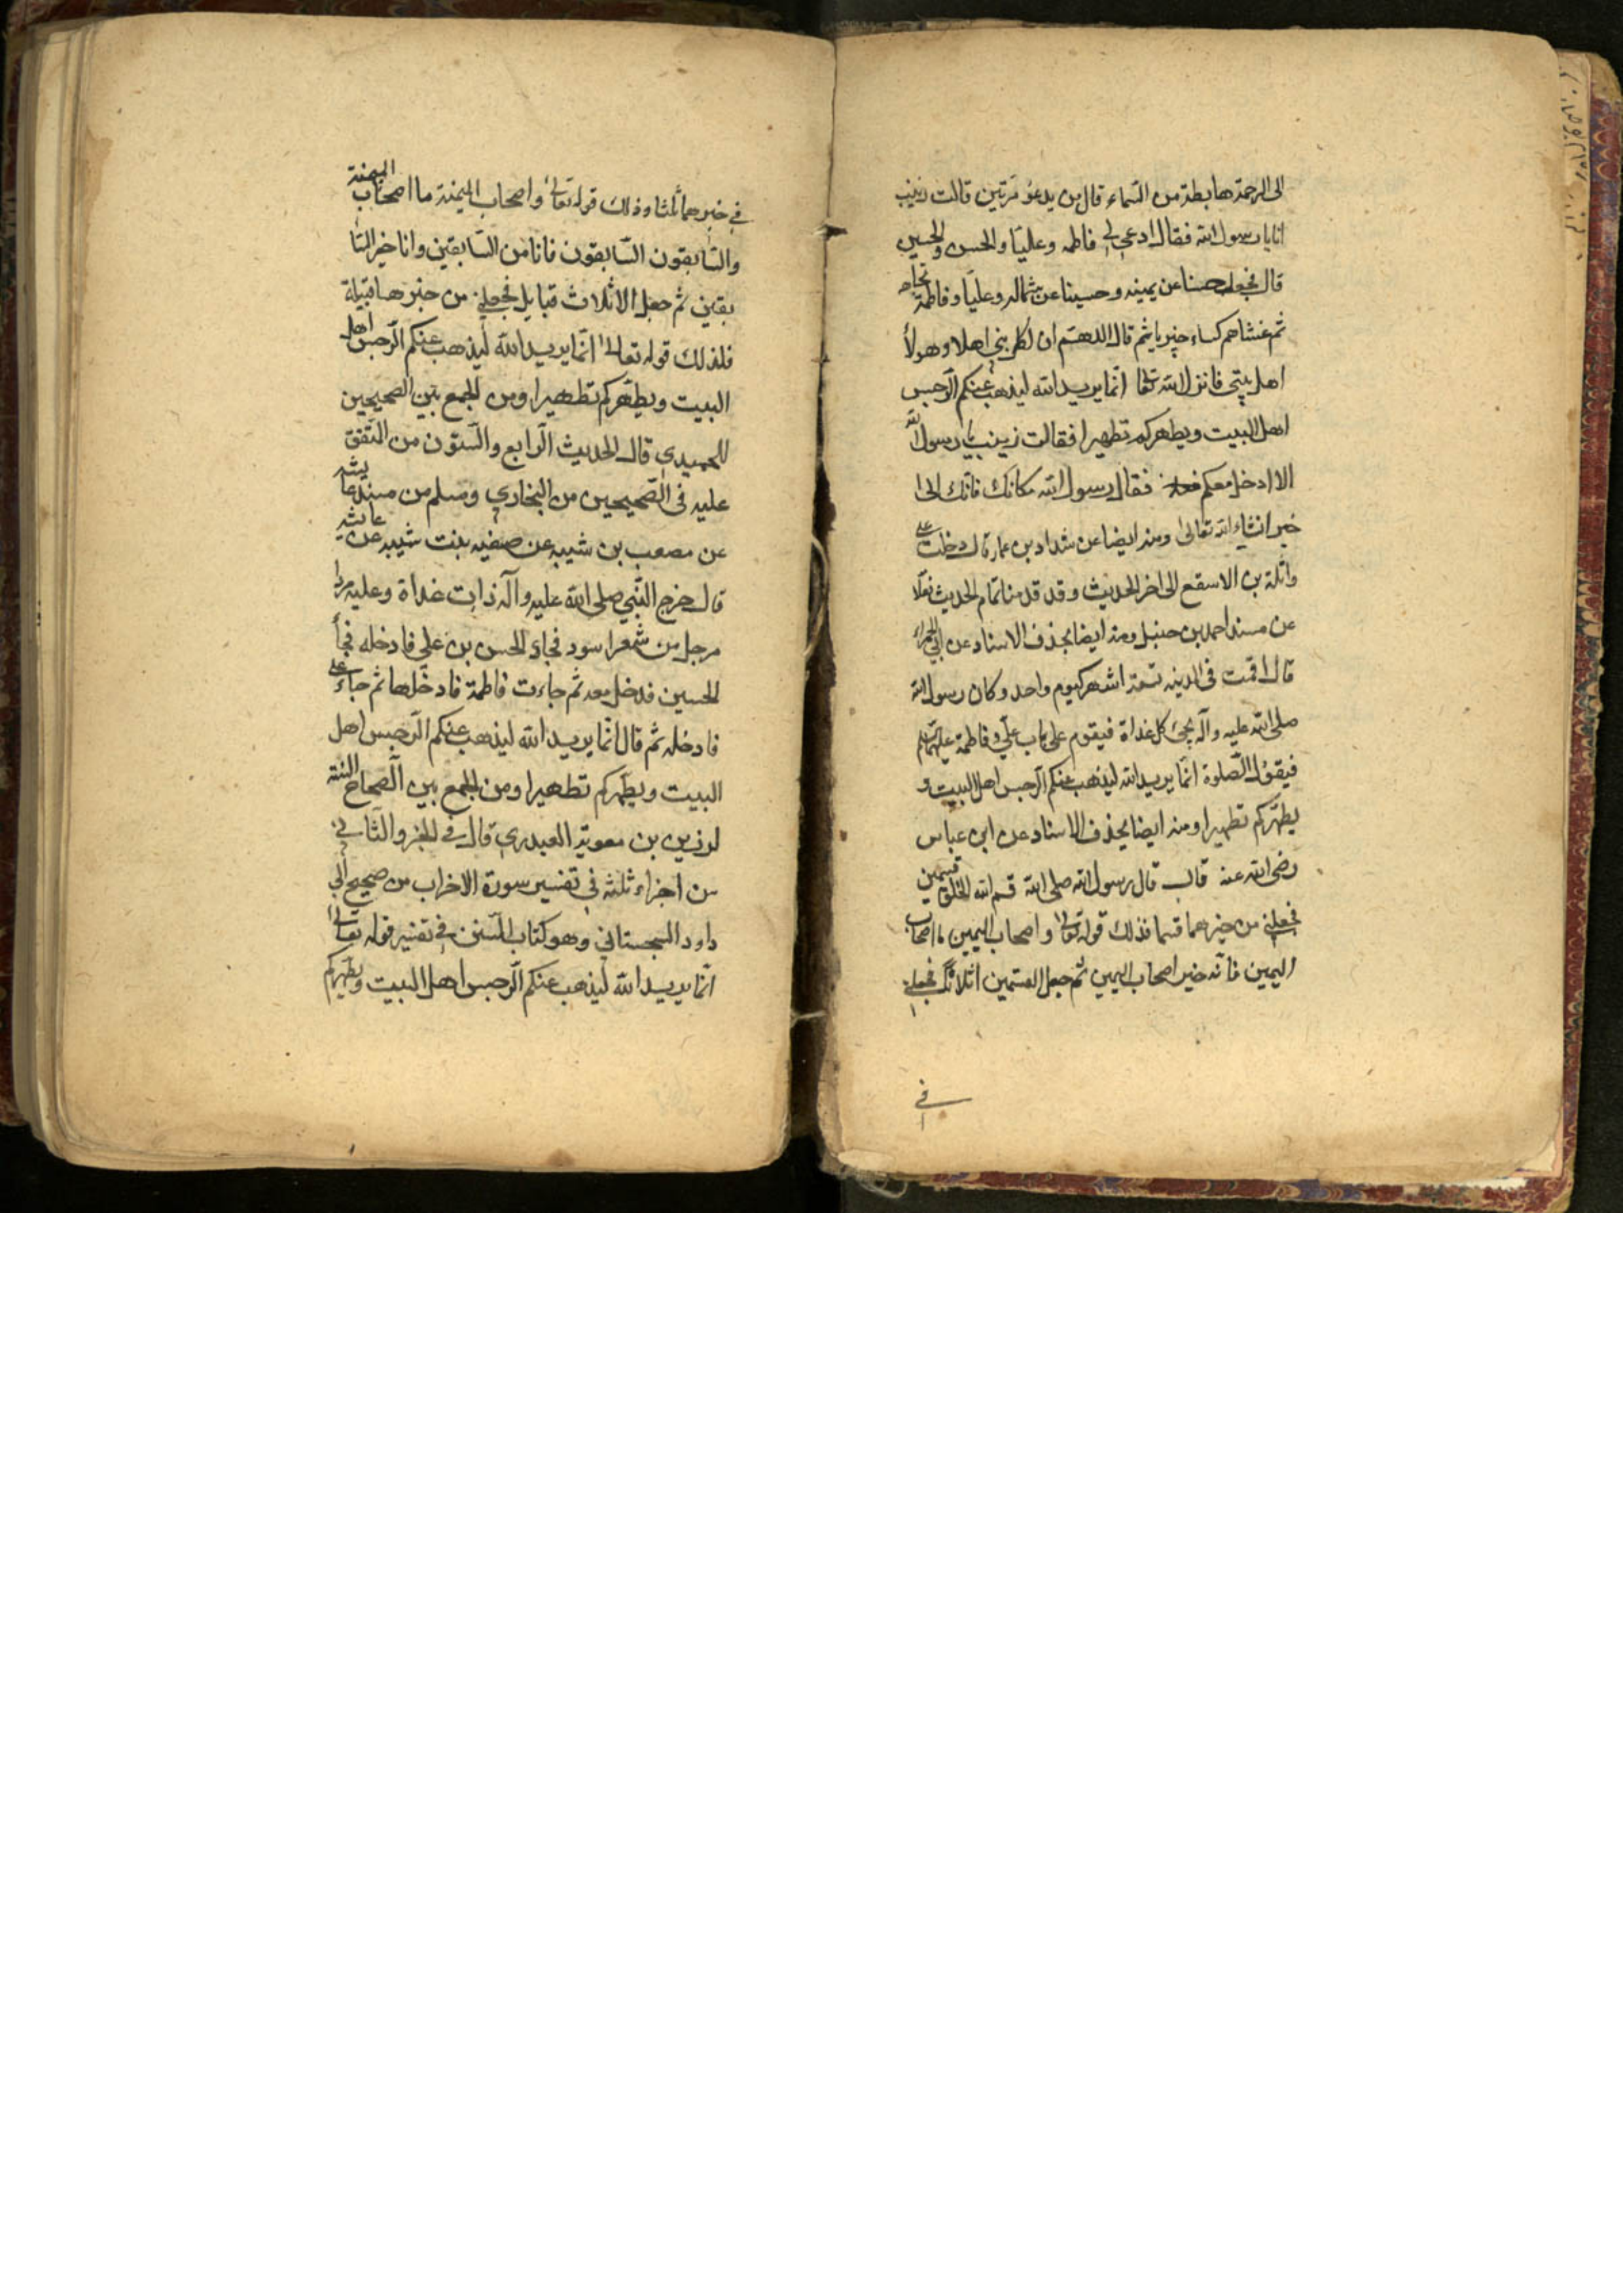 الى الرحمة هابطة من السماء قال من يدعو مرتين قالت زينب
انا يا رسول الله فقال ادعي لي فاطمه وعليا والحسن والحسين
قال فجعل حسنا عن يمينه وحسينا عن شماله وعليا وفاطمة تجاهه
ثم غشاهم كساء خيبريا ثم قال اللهم ان لكل نبي اهلا وهولاء
اهل بيتي فانزل الله تعالى انما يريد الله ليذهب عنكم الرجس
اهل البيت ويطهركم تطهيرا فقالت زينب يا رسول الله
الا ادخل معكم فقال رسول الله مكانك فانك الى
خير انشاء الله تعالى ومنه ايضا عن شداد بن عمار قال دخلت على
واثلة بن الاسقع الى اخر الحديث وقد قدمنا تمام الحديث نقلا
عن مسند احمد بن حنبل ومنه ايضا بحذف الاسناد عن ابي الحمراء
قال اقمت فى المدينه تسعة اشهر كيوم واحد وكان رسول الله
صلى الله عليه وآله يجئ كل غداة فيقوم على باب علي وفاطمة عليهما السلم
فيقول الصلوة انما يريد الله ليذهب عنكم الرجس اهل البيت و
يطهركم تطهيرا ومنه ايضا بحذف الاسناد عن ابن عباس
رضى الله عنه قال قال رسول الله صلى الله قسم الله الخلق قسمين
فجعلني من خيرهما قسما فذلك قوله تعالى واصحاب اليمين ما اصحاب
اليمين فانه خير اصحاب اليمين ثم جعل القسمين اثلاثا فجعلني
في
في خيرهما ثلثا وذلك قوله تعالى واصحاب الميمنة ما اصحاب الميمنة
والسابقون السابقون فانا من السابقين وانا خير السا
بقين ثم جعل الاثلاث قبايل فجعلني من خيرها قبيلة
فلذلك قوله تعالى انما يريد الله ليذهب عنكم الرجس اهل
البيت ويطهركم تطهيرا ومن الجمع بين الصحيحين
للحميدي قال الحديث الرابع والستون من المتفق
عليه فى الصحيحين من البخاري ومسلم من مسند عايشه
عن مصعب بن شيبه عن صفيه بنت شيبه عن عايشه
قال خرج النبي صلى الله عليه وآله ذات غداة وعليه مرط
مرجل من شعر اسود فجاء الحسن بن علي فادخله فجاء
الحسين فدخل معه ثم جاءت فاطمة فادخلها ثم جاء علي
فادخله ثم قال انما يريد الله ليذهب عنكم الرجس اهل
البيت ويطهركم تطهيرا ومن الجمع بين الصحاح الستة
لرزين بن معوية العبدري قال في الجزو الثاني
من اجزاء ثلثه في تفسير سورة الاحزاب من صحيح ابي
داود السجستاني وهو كتاب السنن في تفسير قوله تعالى
انما يريد الله ليذهب عنكم الرجس اهل البيت ويطهركم